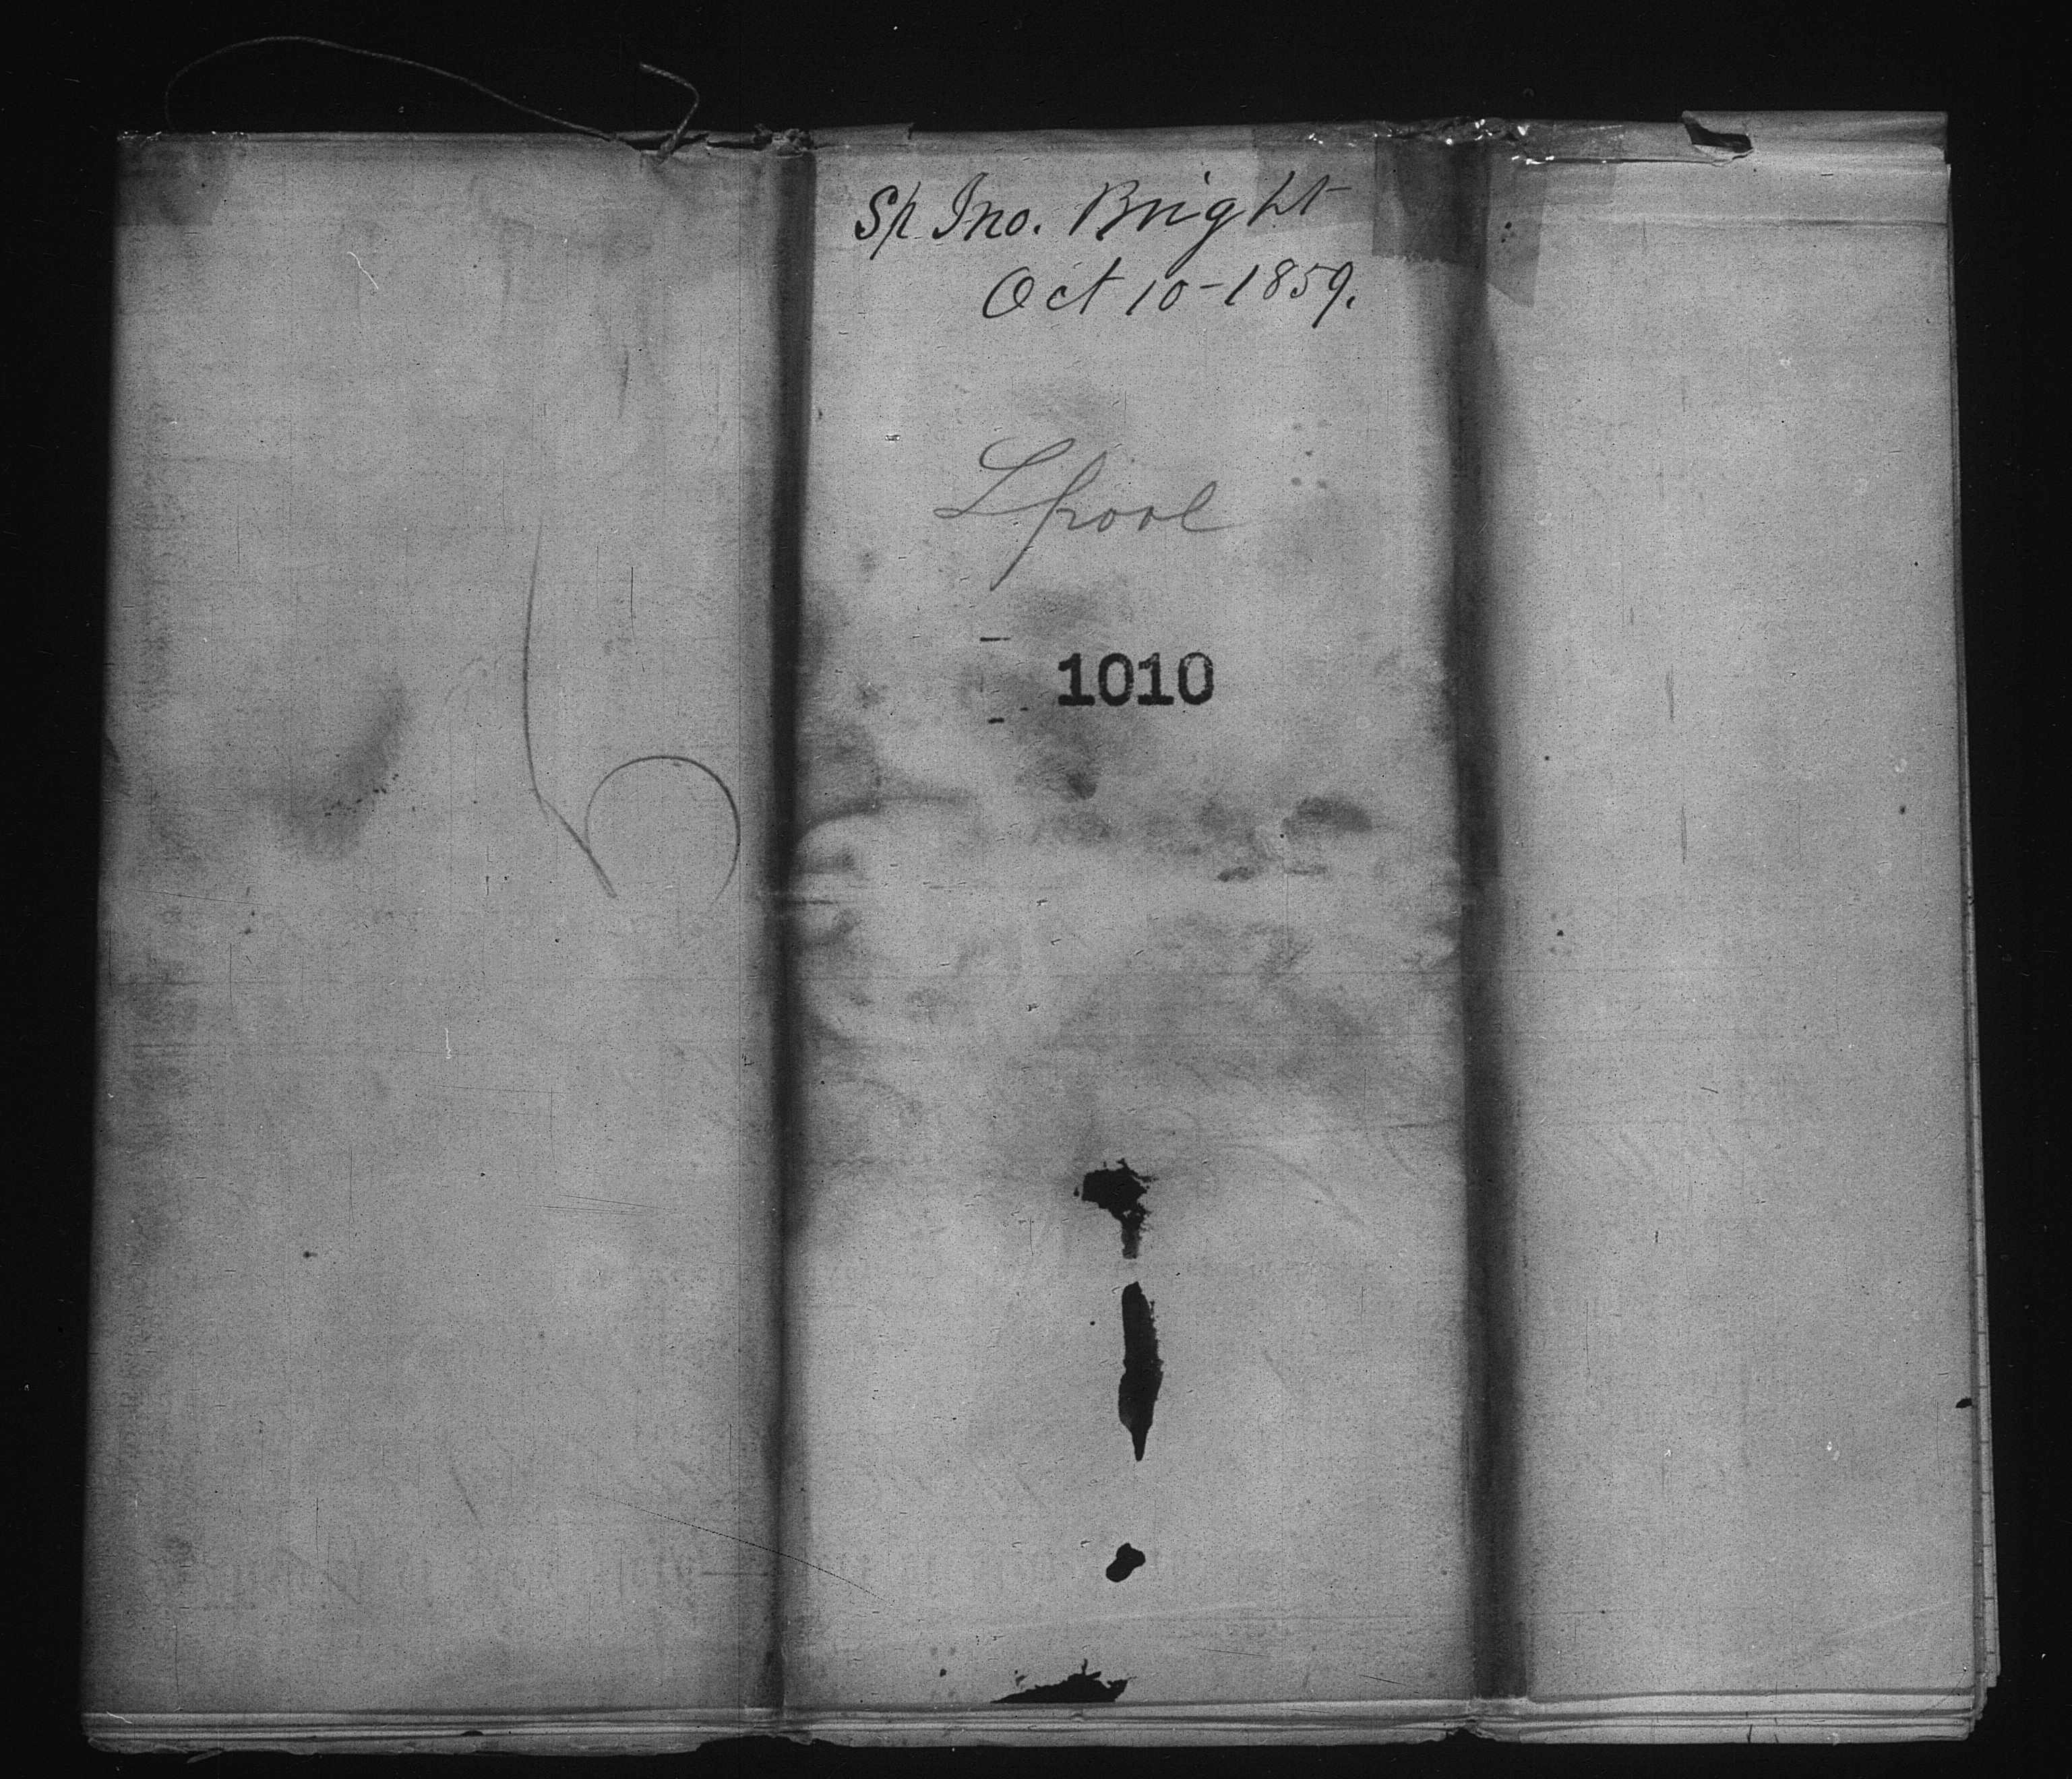 Sp Jno. Bright
Oct 10-1859.
Lpool
1010